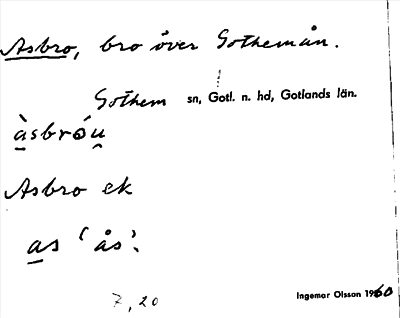 Asbro, bro över Gothemån.
Gothem sn, Gotl. n. hd, Gotlands län.
àsbróu̯
Asbro ek
as 'ås'.
7, 20
Ingemar Olsson 1960